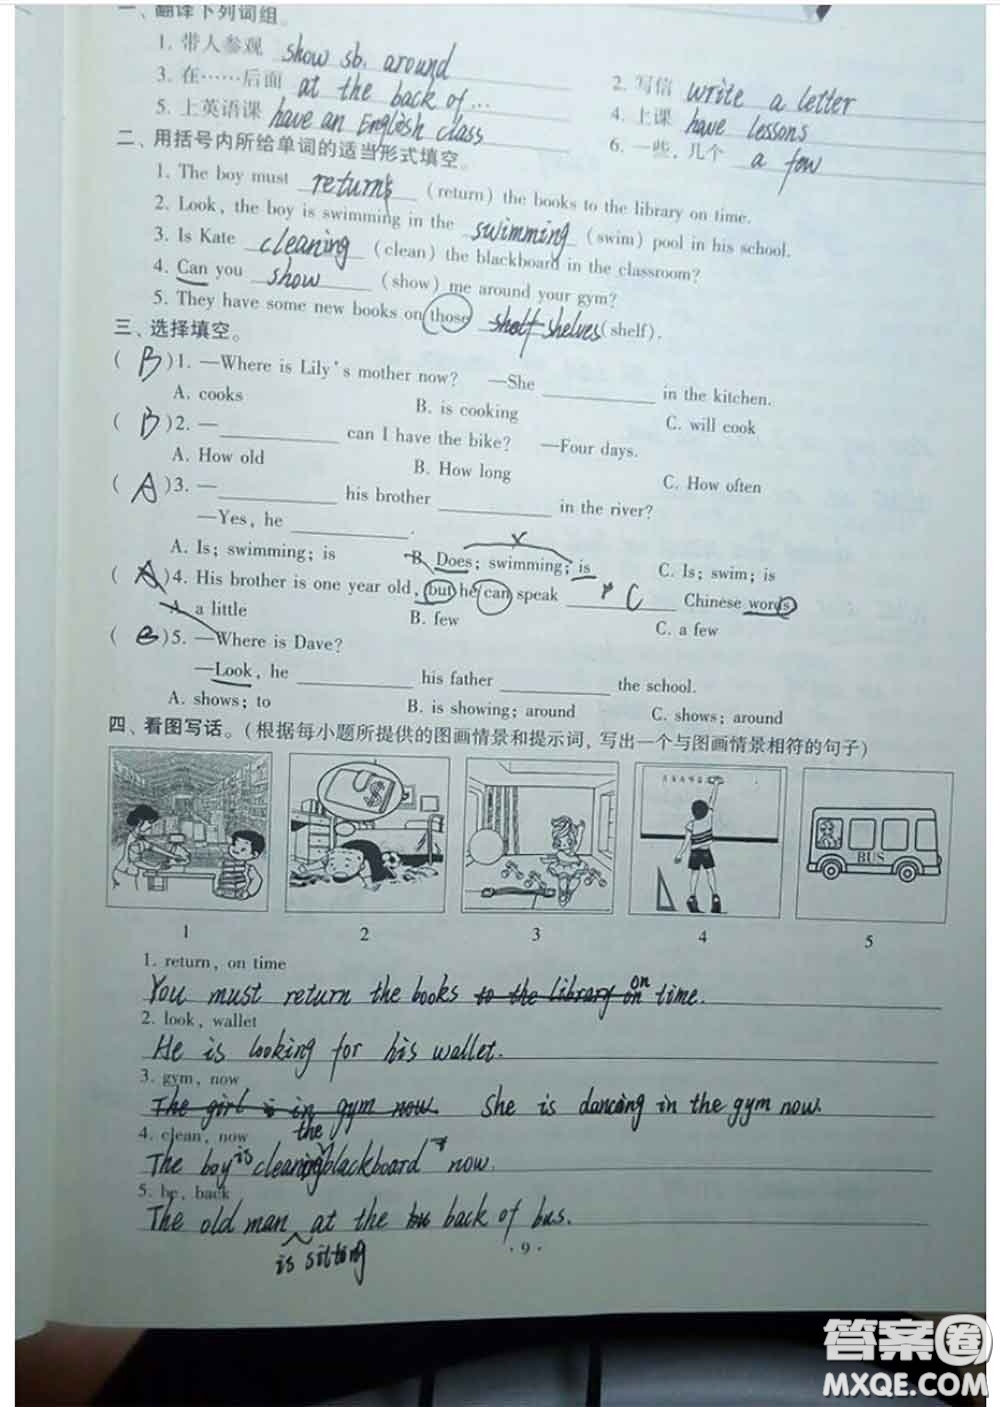 一、翻译下列词组。
1. 带人参观 show sb. around
2. 写信 write a letter
3. 在……后面 at the back of...
4. 上课 have lessons
5. 上英语课 have an English class
6. 一些, 几个 a few
二、用括号内所给单词的适当形式填空。
1. The boy must return (return) the books to the library on time.
2. Look, the boy is swimming in the swimming (swim) pool in his school.
3. Is Kate cleaning (clean) the blackboard in the classroom?
4. Can you show (show) me around your gym?
5. They have some new books on those shelf shelves (shelf).
三、选择填空。
( B )1. —Where is Lily's mother now? —She ________ in the kitchen.
A. cooks B. is cooking C. will cook
( B )2. —________ can I have the bike? —Four days.
A. How old B. How long C. How often
( A )3. —________ his brother ________ in the river?
—Yes, he ________.
A. Is; swimming; is B. Does; swimming; is C. Is; swim; is
( A )4. His brother is one year old, but he can speak C Chinese words
A. a little B. few C. a few
( B )5. —Where is Dave?
—Look, he ________ his father ________ the school.
A. shows; to B. is showing; around C. shows; around
四、看图写话。(根据每小题所提供的图画情景和提示词, 写出一个与图画情景相符的句子)
BUS
1 2 3 4 5
1. return, on time
You must return the books to the library on on time.
2. look, wallet
He is looking for his wallet.
3. gym, now
The girl is in gym now. She is dancing in the gym now.
4. clean, now
The boy is cleaning the blackboard now.
5. be, back
The old man is sitting at the back of bus.
· 9 ·
答案圈
MXQE.COM